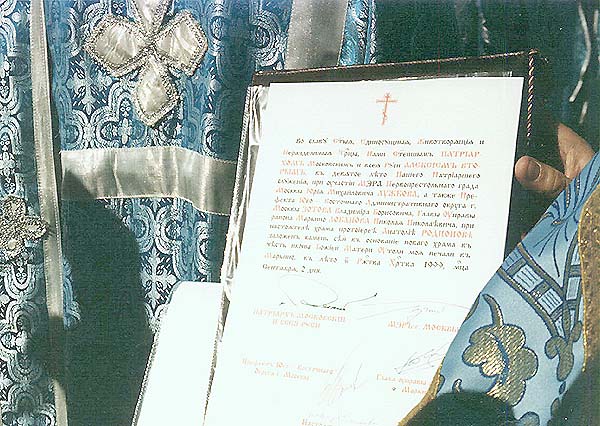 Во славу Стыя, Единосущныя, Животворящия и
Нераздельныя Трцы, Нами Стейшимъ ПАТРИАР-
ХОМЪ Московскимъ и всея Руси АЛЕКСИЕМЪ ВТО-
РЫМЪ, въ девятое лѣто Нашего Патриаршего
служения, при участии МЭРА Первопрестольнаго града
Москвы Юрия Михайловича ЛУЖКОВА, а также Пре-
фекта Юго-Восточнаго Административнаго округа г.
Москвы ЗОТОВА Владимира Борисовича, Главы Управы
районa Марьино ЛОБАНОВА Николая Николаевича, при
настоятелѣ храма протоиереѣ Анатолиѣ РОДИОНОВѢ
заложенъ камень сей въ основание новаго храма въ
честь иконы Божией Матери Утоли моя печали въ
Марьино, въ лѣто от Ржтва Хртва 1999, мца
Сентября, 2 дня.
ПАТРИАРХЪ МОСКОВСКИЙ
И ВСЕЯ РУСИ
МЭРЪ г. МОСКВЫ
Префектъ Юго-Восточнаго
Округа г. Москвы
Глава Управы